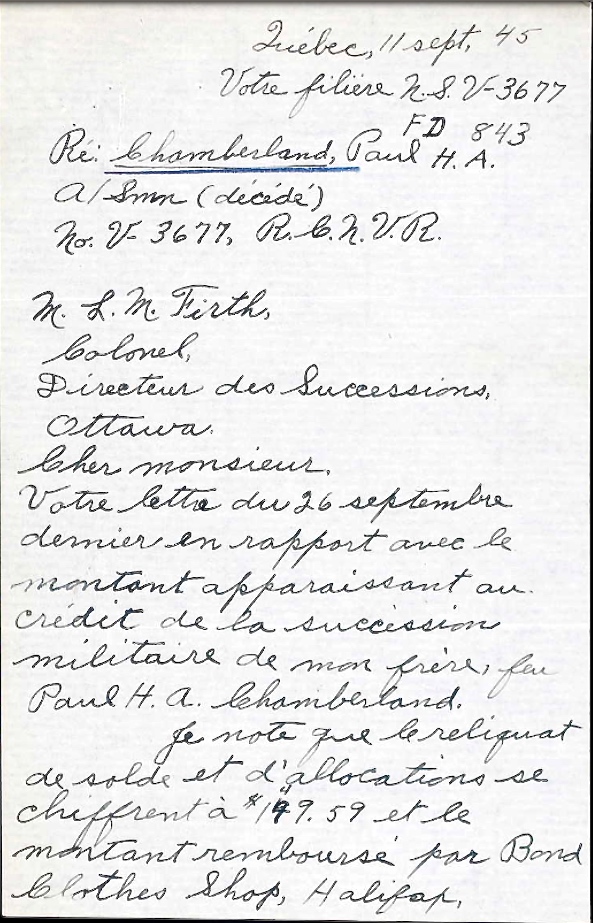 Québec, 11 sept. 45
Votre filière N.S. V-3677
FD 843
Ré: Chamberland, Paul H. A.
A/Smn (décédé)
No. V-3677, R.C.N.V.R.
M. L. M. Firth,
Colonel,
Directeur des Successions,
Ottawa.
Cher monsieur.
Votre lettre du 26 septembre
dernier en rapport avec le
montant apparaissant au
crédit de la succession
militaire de mon frère, feu
Paul H. A. Chamberland.
Je note que le reliquat
de solde et d'allocations se
chiffrent à $199.59 et le
montant remboursé par Bond
Clothes Shop, Halifax,